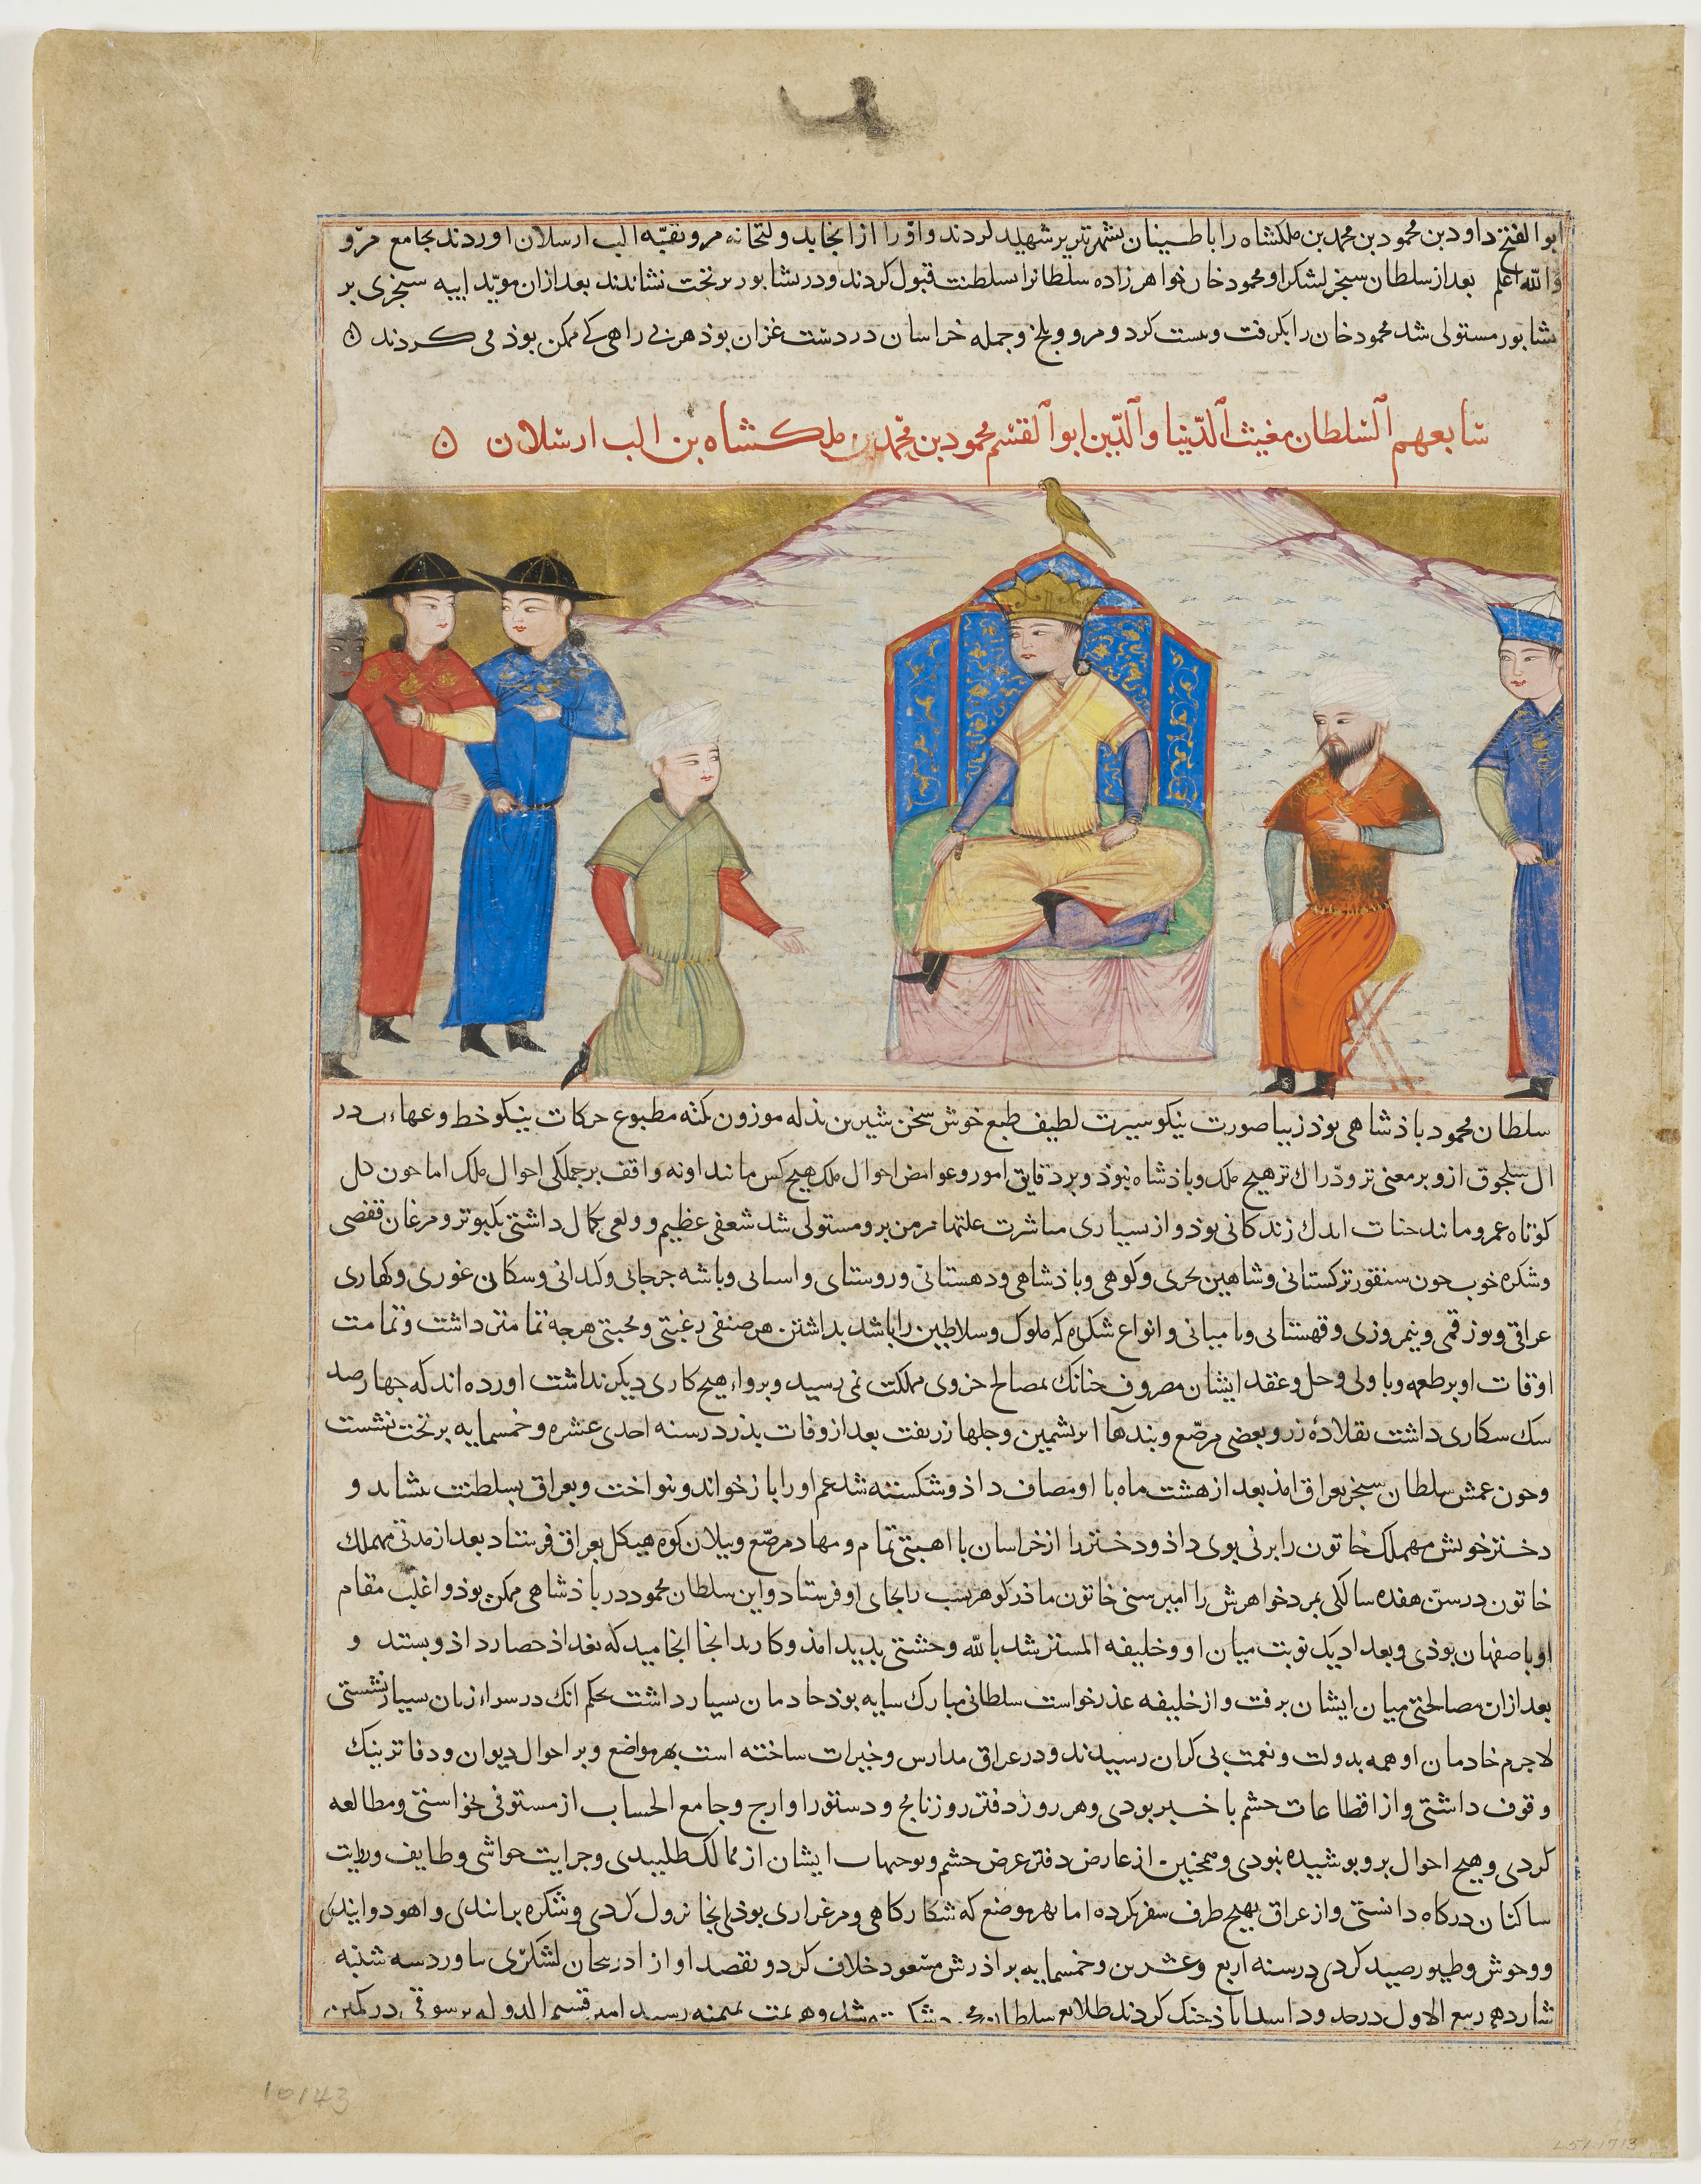 ابوالفتح داود بن محمود بن محمد بن ملکشاه را باطنیان بشهر تبریز شهید کردند و او را از انجا بدولتخانه مرو بقبّه الب ارسلان اوردند بجامع مرو
والله اعلم بعد از سلطان سنجر لشکر او محمود خان خواهرزاده سلطانرا بسلطنت قبول کردند و در نشابور بر تخت نشاندند بعد ازان مویّد ایبه سنجری بر
نشابور مستولی شد محمود خان را بکرفت و بست کرد و مرو و بلخ و جمله خراسان در دست غزان بوذ هر بی راهی که ممکن بوذ می کردند
سابعهم السلطان مغیث الدّنیا والدّین ابوالقسم محمود بن محمّد بن ملکشاه بن الب ارسلان
سلطان محمود باذشاهی بوذ زیبا صورت نیکو سیرت لطیف طبع خوش سخن شیرین بذله موزون نکته مطبوع حرکات نیکو خط و عهاء در
ال سلجوق ازو برمعنی تر و درّاك تر هیچ ملک و باذشاه نبوذ و بر دقایق امور و غوامض احوال ملک هیچ کس مانند او نه واقف بر جملکی احوال ملک اما چون کل
کوتاه عمر و مانند حنات اندك زندکانی بوذ و از بسیاری مباشرت علتها مزمن برو مستولی شد شعفی عظیم و ولعی بکمال داشتی بکبوتر و مرغان قفصی
و شکره خوب چون سنقور ترکستانی و شاهین بحری و کوهی و باذشاهی و دهستانی و روستای و اسبانی و باشه جرجانی و کلدانی و سکان غوری و کهاری
عراقی و یوز قمی و نیمروزی و قهستانی و بامیانی و انواع شکره که ملوک و سلاطین را باشد بداشتن هر صنفی رغبتی و محبتی هرچه تمامتر داشت و تمامت
اوقات او بر طعمه و باولی و حل و عقد ایشان مصروف چنانک بمصالح جزوی مملکت نمی رسید و پرواء هیچ کاری دیکر نداشت اورده اند که چهارصد
سك شکاری داشت بقلادۀ زر و بعضی مرصّع و بندها ابریشمین و جلها زربفت بعد از وفات بذر در سنه احدی عشره و خمسمایه بر تخت نشست
و چون عمش سلطان سنجر بعراق امذ بعد از هشت ماه با او مصاف داذ و شکسته شد عم او را باز خواند و نواخت و بعراق بسلطنت بنشاند و
دختر خویش مهملک خاتون را بزنی بوی داذ و دختر را از خراسان با اهبتی تمام و مهاد مرصّع و بیلان کوه هیکل بعراق فرستاد بعد از مدتی مهملك
خاتون در سن هفده سالکی بمرد خواهرش را امیر ستی خاتون ماذر کوهر نسب را بجای او فرستاد و این سلطان محمود در باذشاهی ممکن بوذ و اغلب مقام
او باصفهان بوذی و بغداد یک نوبت میان او و خلیفه المسترشد بالله وحشتی بدید امذ و کار بدانجا انجامید که بغداذ حصار داذ و بستد و
بعد ازان مصالحتی میان ایشان برفت و از خلیفه عذر خواست سلطانی مبارک سایه بوذ خادمان بسیار داشت بحکم انک در سراء زنان بسیار نشستی
لاجرم خادمان او همه بدولت و نعمت بی کران رسیدند و در عراق مدارس و خیرات ساخته است بهر مواضع و بر احوال دیوان و دفاتر نیک
وقوف داشتی و از اقطاعات حشم با خبر بودی و هر روز دفتر روزنامج و دستور اوارج و جامع الحساب از مستوفی بخواستی و مطالعه
کردی و هیچ احوال برو بوشیده نبودی و همچنین از عارض دفتر عرض حشم و توجیهات ایشان از ممالک طلبیدی و جرایت حواشی وظایف و رواتب
ساکنان درکاه دانستی و از عراق بهیچ طرف سفر نکرده اما بهر موضع که شکارکاهی و مرغزاری بوذی انجا نزول کردی و شکره برانندی و اهو دوانیدی
و وحوش و طیور صید کردی در سنه اربع وعشرین وخمسمایه براذرش مسعود خلاف کرد و بقصد او از اذربیجان لشکری بیاورد سه شنبه
شازدهم ربیع الاول در حدود اسداباذ جنک کردند طلایع سلطان محمود شکسته شد و هزیمت بمیمنه رسید امیر قسیم الدوله برسوقی در کمین
10143